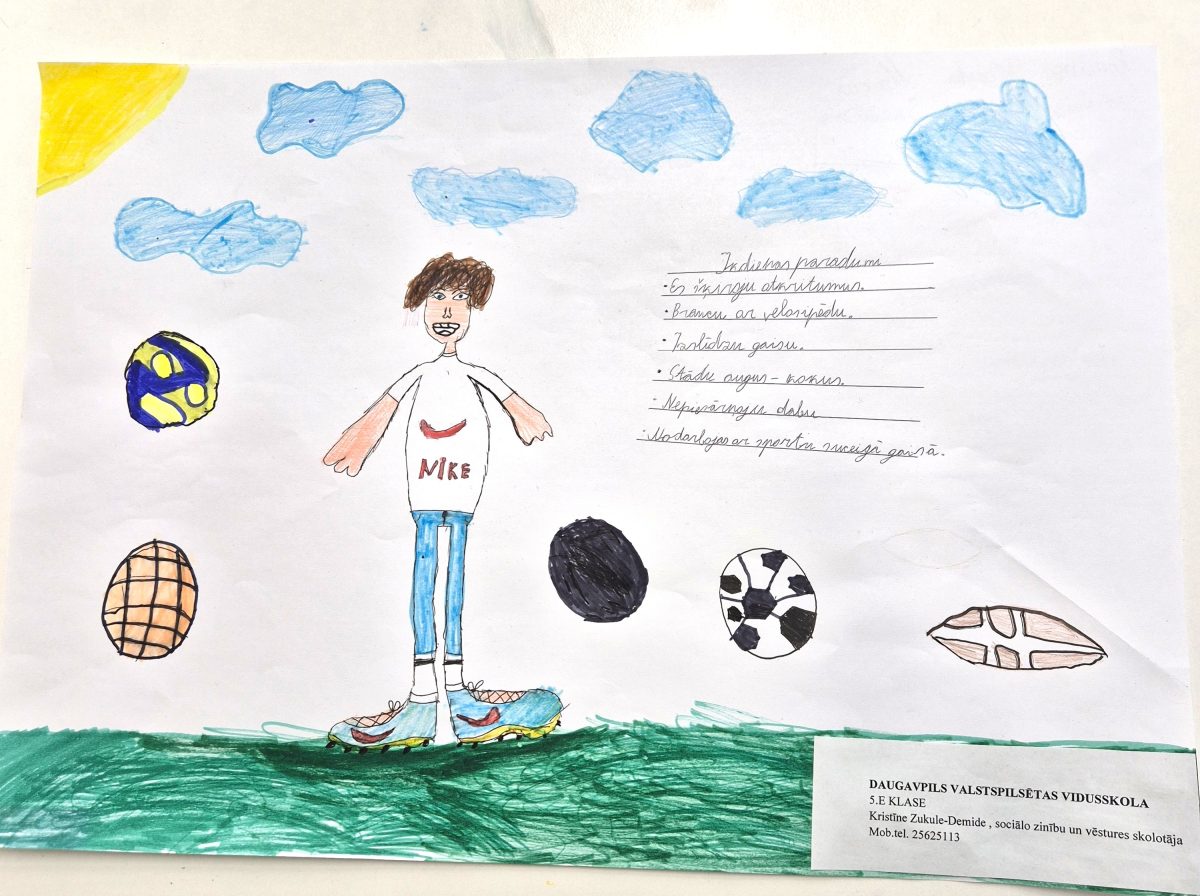 Ikdienas paradumi
• Es šķiroju atkritumus.
• Braucu ar velosipēdu.
• Izslīdzu gaisu.
• Stādu augus - kokus.
• Nepiesārņoju dabu
• Nodarbojas ar sportu sveigā gaisā.
NIKE
DAUGAVPILS VALSTSPILSĒTAS VIDUSSKOLA
5.E KLASE
Kristīne Zukule-Demide , sociālo zinību un vēstures skolotāja
Mob.tel. 25625113